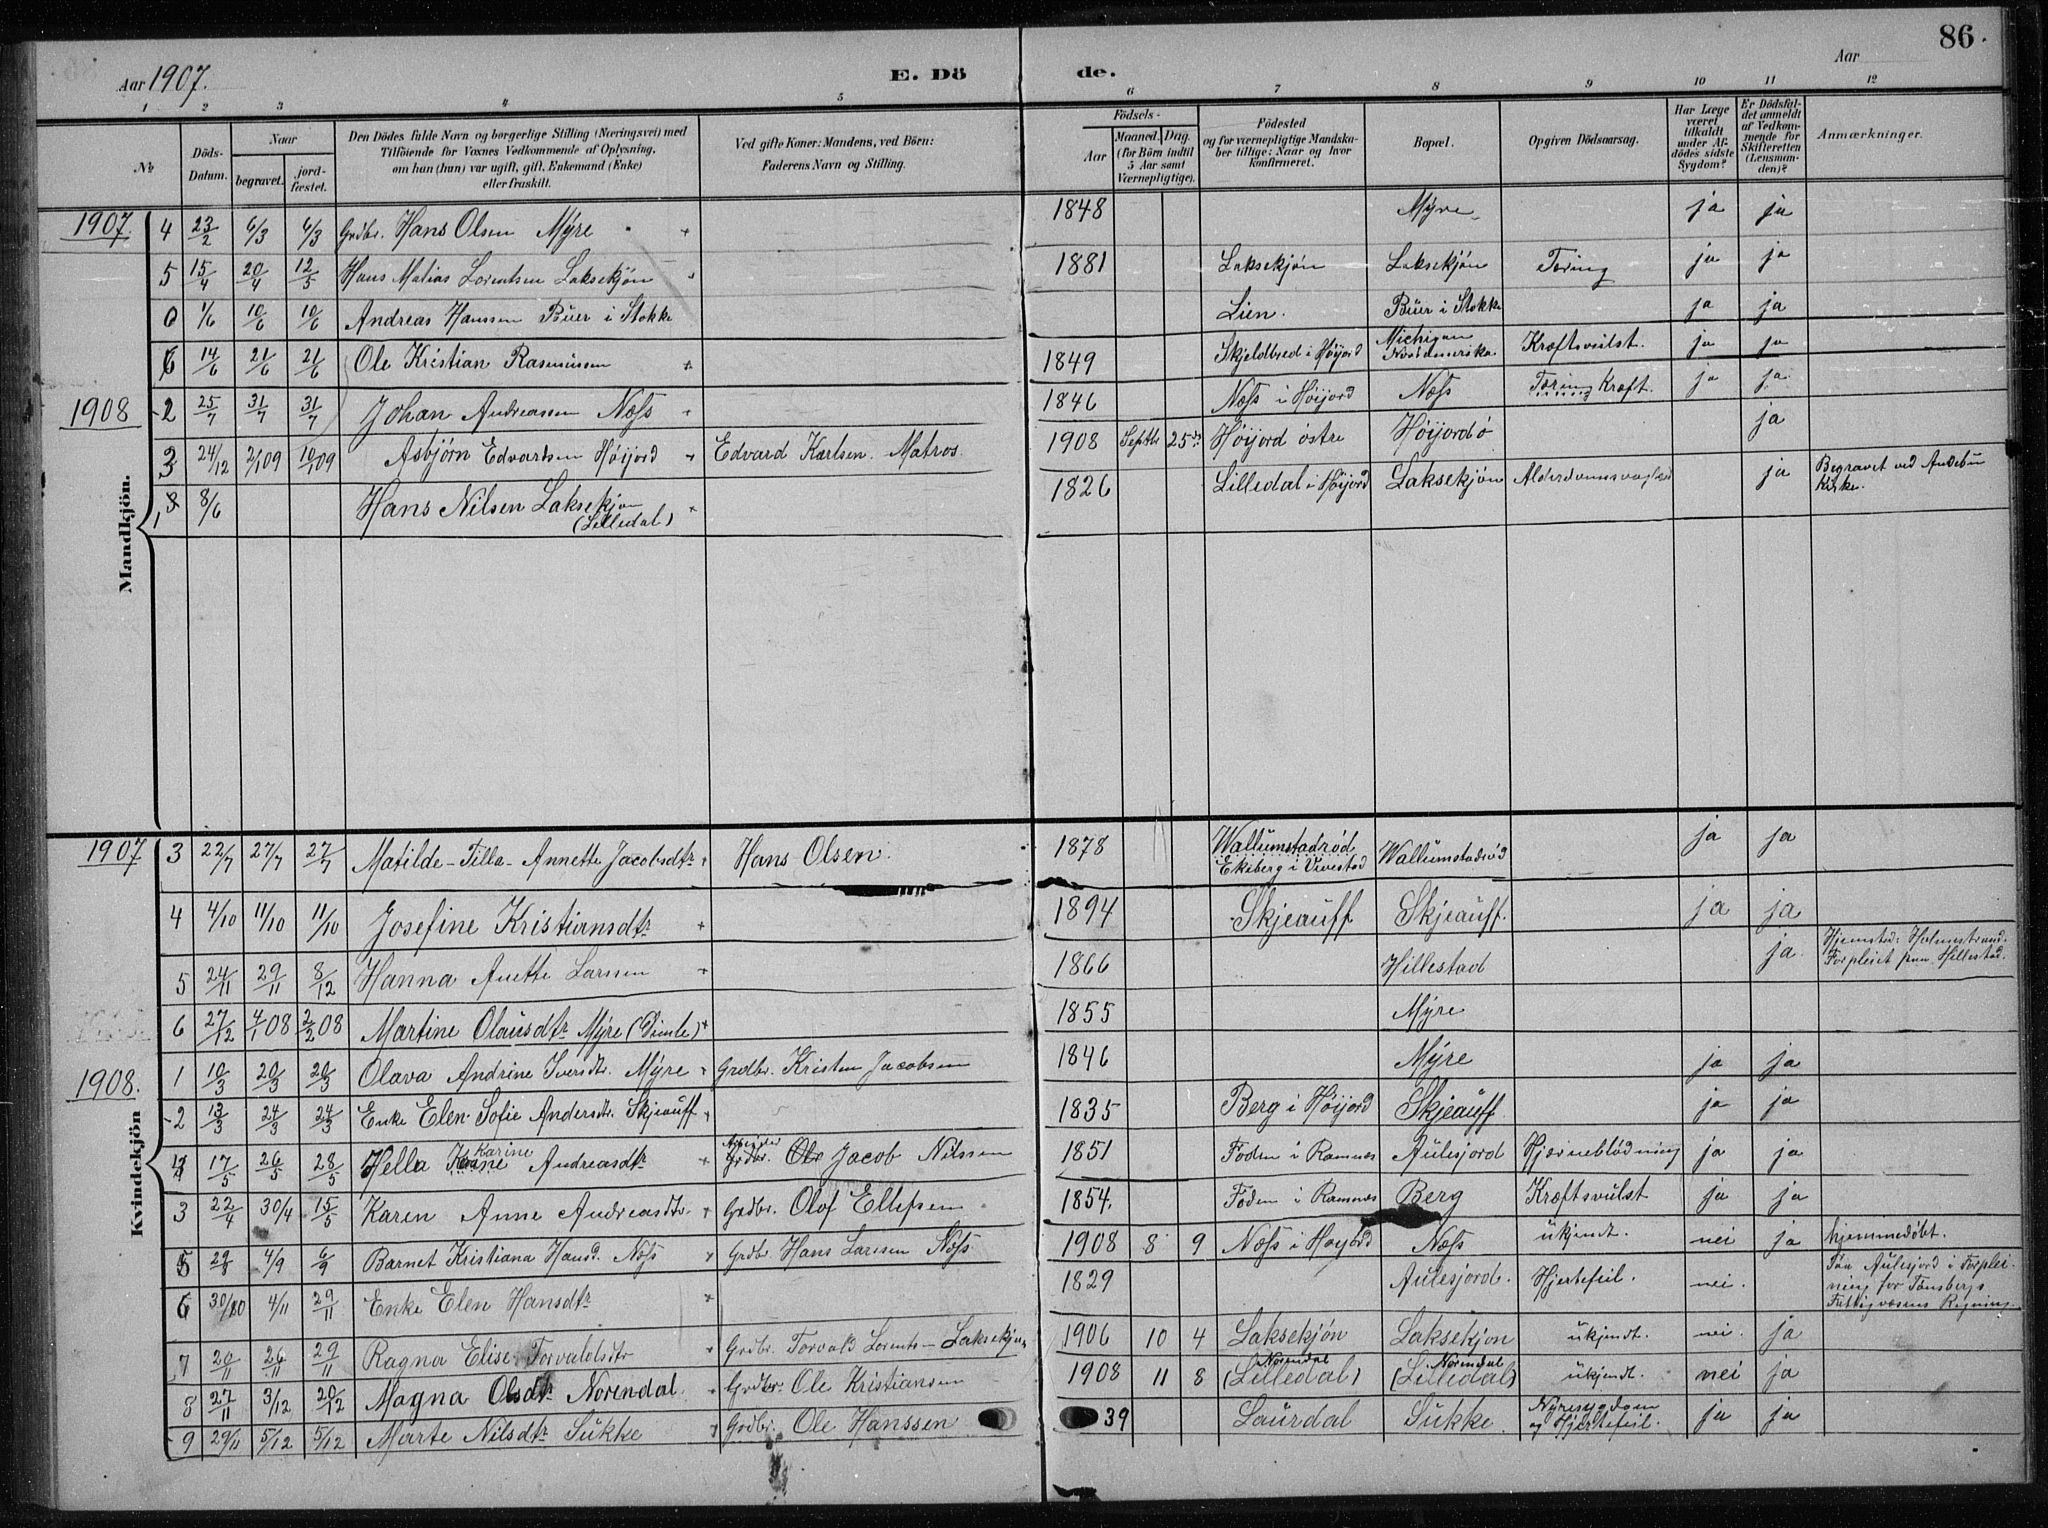 86.
Aar 1907.
E. Dö
de.
Aar
1 2 3 4 5 6 7 8 9 10 11 12
№
Döds-
Datum.
Naar
begravet.
jord-
fæstet.
Den Dödes fulde Navn og borgerlige Stilling (Næringsvei) med
Tilföiende for Voxnes Vedkommende af Oplysning,
om han (hun) var ugift, gift, Enkemand (Enke)
eller fraskilt.
Ved gifte Koner: Mandens, ved Börn:
Faderens Navn og Stilling.
Födsels-
Aar
Maaned. Dag.
(for Börn indtil
5 Aar samt
Værnepligtige).
Födested
og for værnepligtige Mandska-
ber tillige: Naar og hvor
konfirmeret.
Bopæl.
Opgiven Dödsaarsag.
Har Læge
været
tilkaldt
under Af-
dödes sidste
Sygdom?
Er Dödsfal-
det anmeldt
af Vedkom-
mende for
Skifteretten
(Lensman-
den)?
Anmærkninger.
Mandkjön.
1907. 4 23/2 6/3 6/3 Grdbr. Hans Olsen Myre 1848 Myre ja ja
5 15/4 20/4 12/5 Hans Matias Lorentsen Laksekjøn 1881 Laksekjøn Laksekjøn Tæring ja ja
0 1/6 10/6 10/6 Andreas Hanssen Buer i Stokke Lien. Buer i Stokke ja ja
6 14/6 21/6 21/6 Ole Kristian Rasmussen 1849 Skjeldbred i Høijord Michigan Nordamerika Kræftsvulst. ja ja
1908 2 25/7 31/7 31/7 Johan Andreassen Næss 1846 Næss i Høijord Næss Tæring Kræft. ja ja
3 24/12 2/1 09 10/1 09 Asbjørn Edvartsen Høijord Edvard Karlsen. Matros. 1908 Septbr 25de Høijord østre Høijord ø ja
1 8/6 Hans Nilsen Laksekjøn
(Lilledal)
1826 Lilledal i Høijord Laksekjøn ja Begravet ved Andebu
Kirke.
Kvindekjön
1907 3 22/7 27/7 27/7 Matilde-Tilla-Annette Jacobsdtr Hans Olsen. 1878 Wallumstadrød
Ekeberg i Vivestad
Wallumstadrød ja ja
4 4/10 11/10 11/10 Josefine Kristiansdtr 1894 Skjeauff Skjeauff. ja ja
5 24/11 29/11 8/12 Hanna Anette Larssen 1866 Hillestad ja. Hjemstad: Holmestrand.
Forpleiet paa Hillestad.
6 27/12 4/1 08 2/2 08 Martine Olausdtr Myre (Dimle) 1855 Myre
1908. 1 10/3 20/3 20/3 Olava Andrine Iversdtr. Myre Grdbr. Kristen Jacobsen 1846 Myre ja ja
2 13/3 24/3 24/3 Enke Elen Sofie Andersdtr. Skjeauff 1835 Berg i Høijord Skjeauff. ja ja
4 17/5 26/5 28/5 Hella Karine Andreasdtr Arbeider Grdbr. Ole Jacob Nilssen 1851 Foden i Ramnes Aulesjord Hjærneblødning ja ja
3 22/4 30/4 15/5 Karen Anne Andreasdtr. Grdbr. Olof Ellefsen 1854. Foden i Ramnes Berg Kræftsvulst ja ja
5 29/8 4/9 6/9 Barnet Kristiana Hansd. Næss Grdbr. Hans Larssen Næss 1908 8 9 Næss i Høyord Næss ukjendt. nei ja hjemmedøbt.
6 30/10 4/11 29/11 Enke Elen Hansdtr 1829 Aulesjord. Hjertefeil. nei. Fra Aulesjord i Forplei-
ning for Tønsbergs
Fattigvæsens Regning.
7 20/11 26/11 29/11 Ragna Elise Torvaldsdtr Grdbr. Torvald Lorents- Laksekjøn 1906 10 4 Laksekjøn Laksekjøn ukjendt. nei. ja
8 27/11 3/12 20/12 Magna Olsdtr. Norendal. Grdbr. Ole Kristiansen 1908 11 8 Norendal (Lilledal) Norendal (Lilledal) ukjendt. nei ja
9 29/11 5/12 5/12 Marte Nilsdtr Sukke Grdbr. Ole Hanssen 39 Laurdal Sukke. Nyresygdom
og Hjertefeil.
ja ja